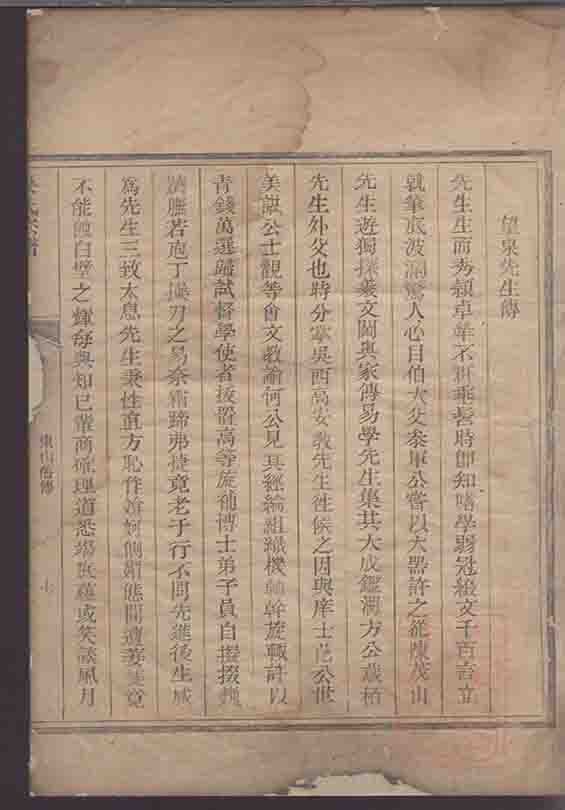 望泉先生傳
先生生而秀穎卓犖不羣乖髫時即知嗜學弱冠綴文千百言立
就筆底波瀾驚人心目伯大父泰軍公嘗以大器許之從陳茂山
先生遊獨探羲文閫奧家傳易學先生集其大成鑑澗方公蕆栢
先生外父也時分掌吳西高安敎先生徃候之因與庠士范公世
美諶公士觀等會文敎諭何公見其經綸組織機軸幹旋輙許以
青錢萬選歸試督學使者拔置高等旋補博士弟子員自掇
臍膴若庖丁操刃之易奈霜蹄弗捷竟老于行不問先進後生咸
爲先生三致太息先生秉性直方恥作媕婀側媚態間遭萋菲竟
不能 白璧之輝每與知已輩商確理道悉塲 蘊或笑談風月
東山俗傳